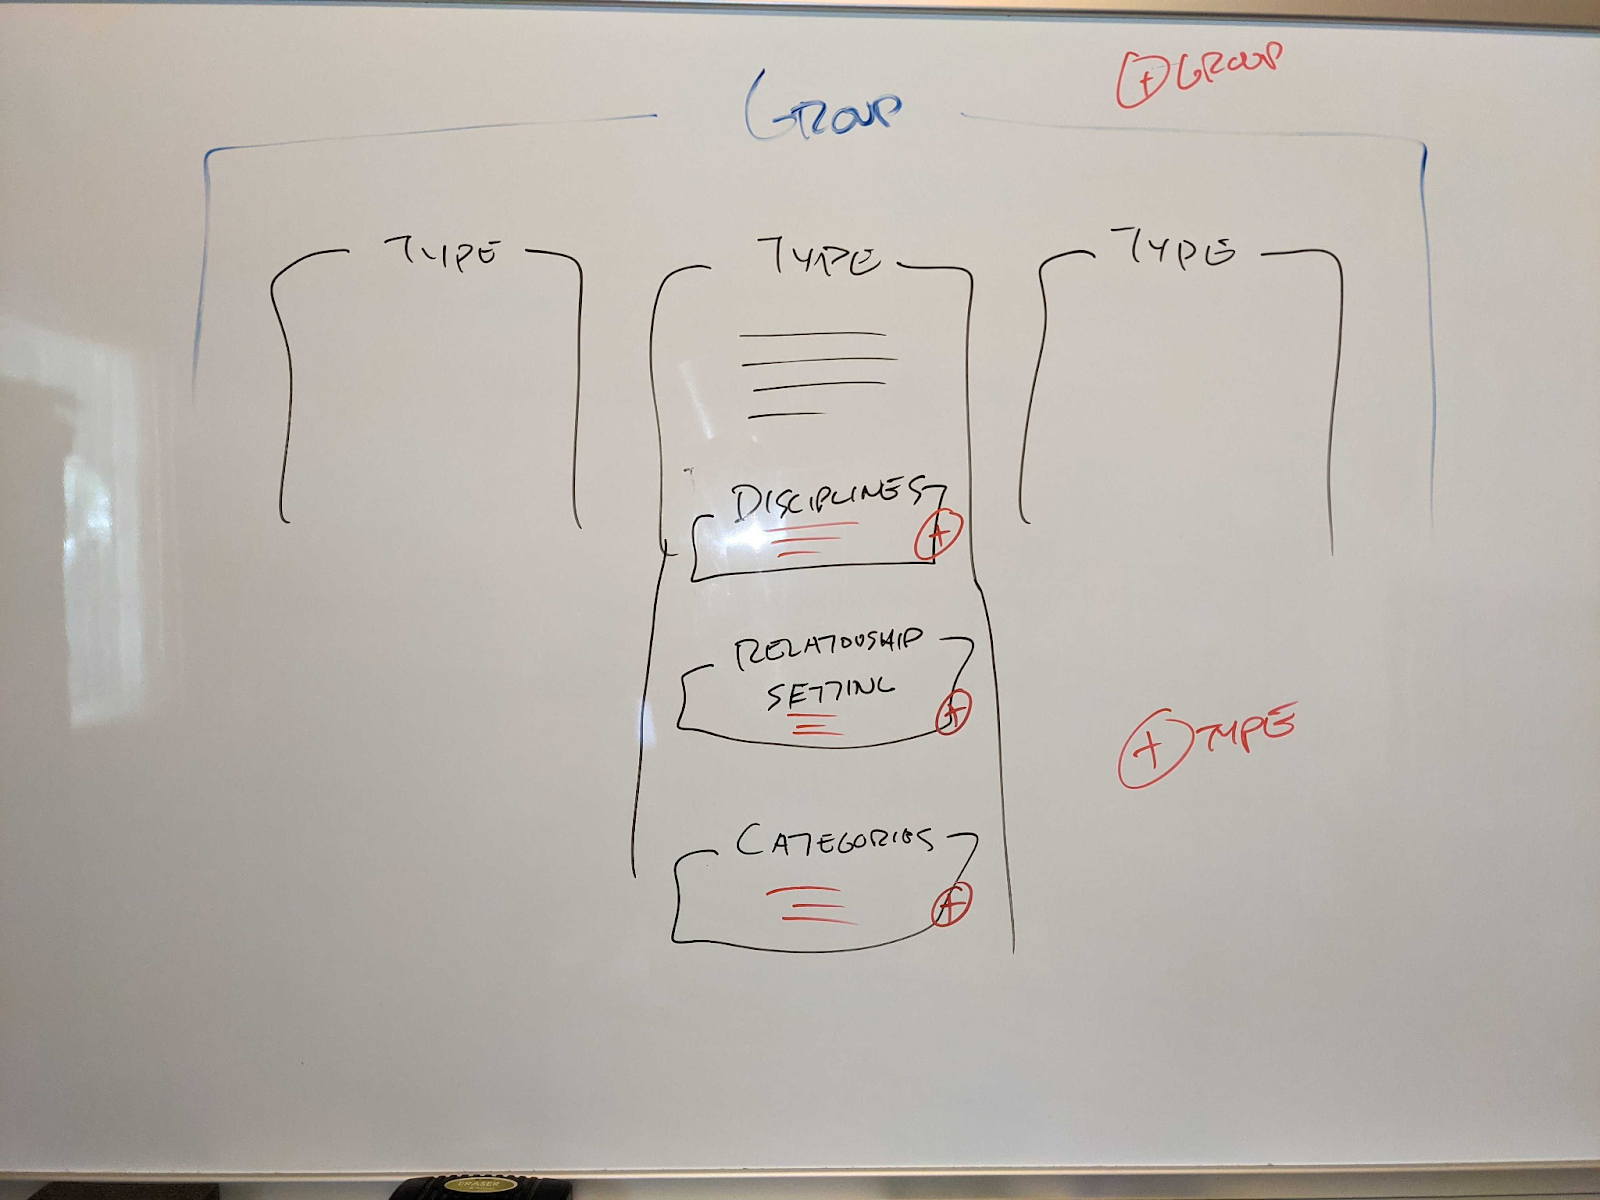 + GROUP
GROUP
TYPE
TYPE
TYPE
DISCIPLINES
+
RELATIOUSHIP
SETTING
+
+ TYPE
CATEGORIES
+
ERASER